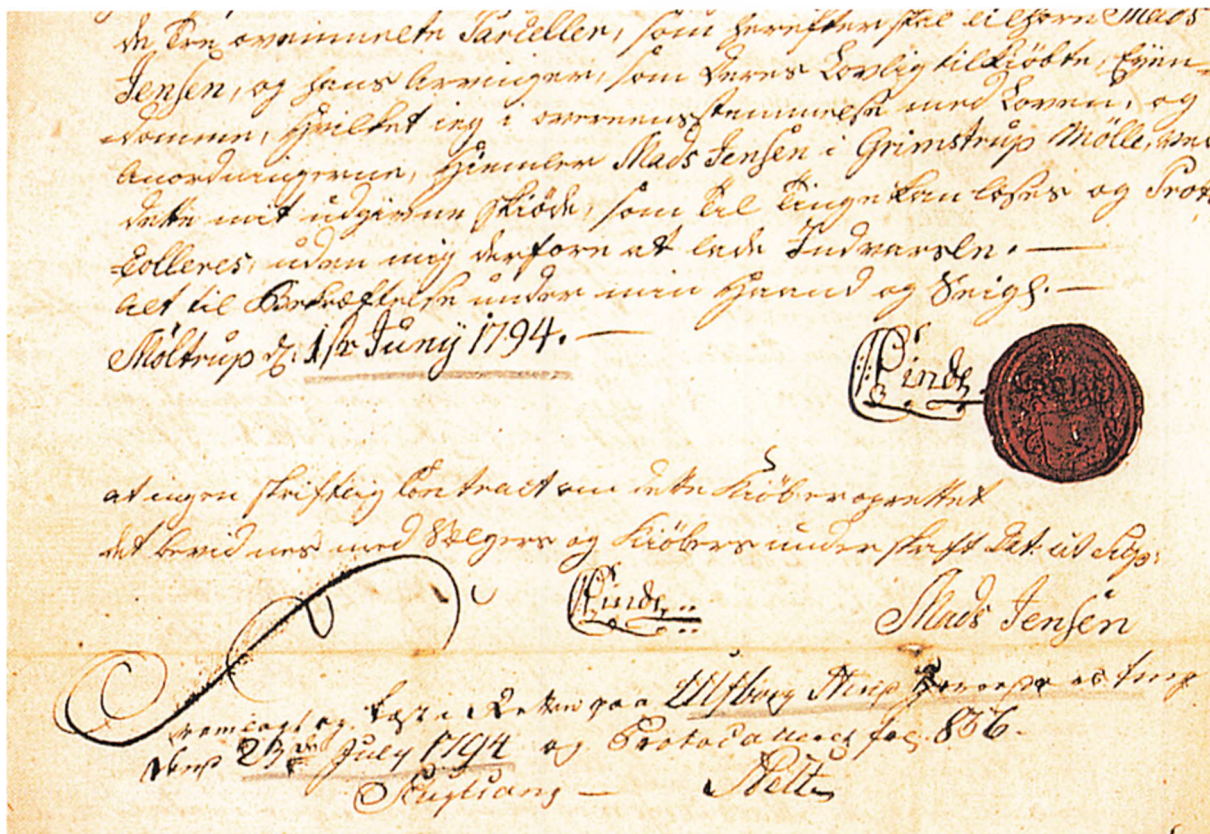 de Tre ovenmelte Parceller, som herefter skal tilhøre Mads
Jensen, og hans Arvinger, som deres Lovlig tilkiøbte, Eyen-
domme, Hvilket ieg i overeensstemmelse med Loven, og
Anordningerne, Hiemler Mads Jensen i Grimstrup Mølle, ved
dette mit udgivne Skiøde, som til Tinge kan læses og Proto
colleres, uden mig derfore at lade Indvarsle. —
Alt til Bekræftelse under min Haand og Seigl. —
Møltrup d: 1ste Juny 1794. —
Linde
at ingen skriftlig Contract om dette Kiøb er oprettet
det bevidnes med Sælgers og Kiøbers underskrift Dat: ut Sup:
Linde
Mads Jensen
Fremlagt og læst i Retten paa Ulfborg Hind
den 23de July 1794 og Protocolleret fol: 836.